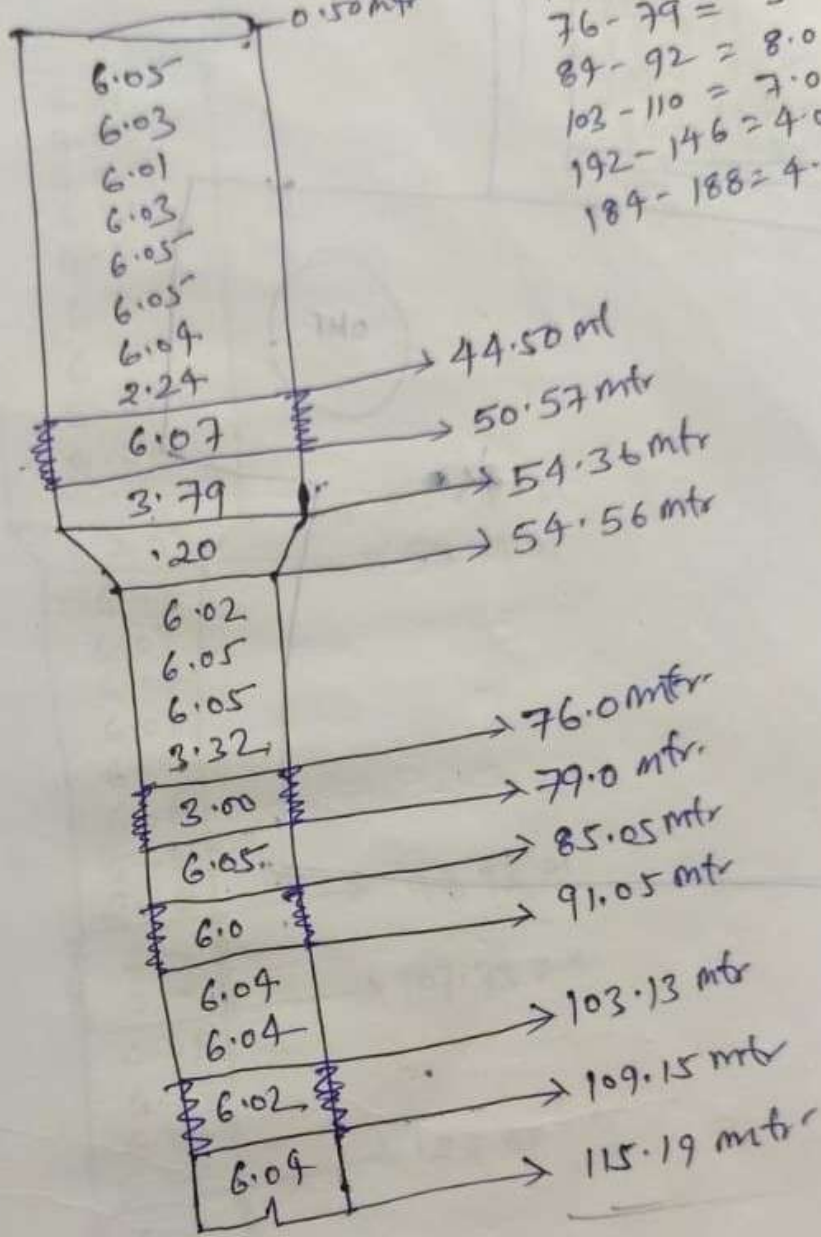 0.50 mtr
76-79 =
84-92 = 8.0
103-110 = 7.0
142-146 = 4.0
184-188 = 4.
6.05
6.03
6.01
6.03
6.05
6.05
6.04
2.24
44.50 ml
6.07
50.57 mtr
3.79
54.36 mtr
.20
54.56 mtr
6.02
6.05
6.05
3.32
76.0 mtr.
3.00
79.0 mtr.
6.05
85.05 mtr
6.0
91.05 mtr
6.04
6.04
103.13 mtr
6.02
109.15 mtr
6.04
115.19 mtr